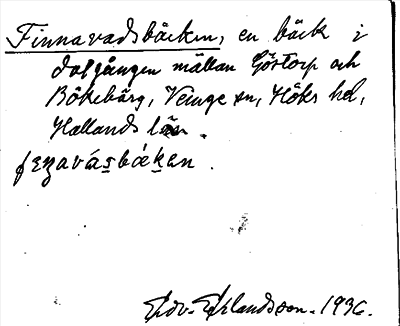 Finnavadsbäcken, en bäck i
dalgången mällan Göstorp och
Bökebärg, Veinge sn, Höks hd,
Hallands län.
Edv. Erlandsson. 1936.